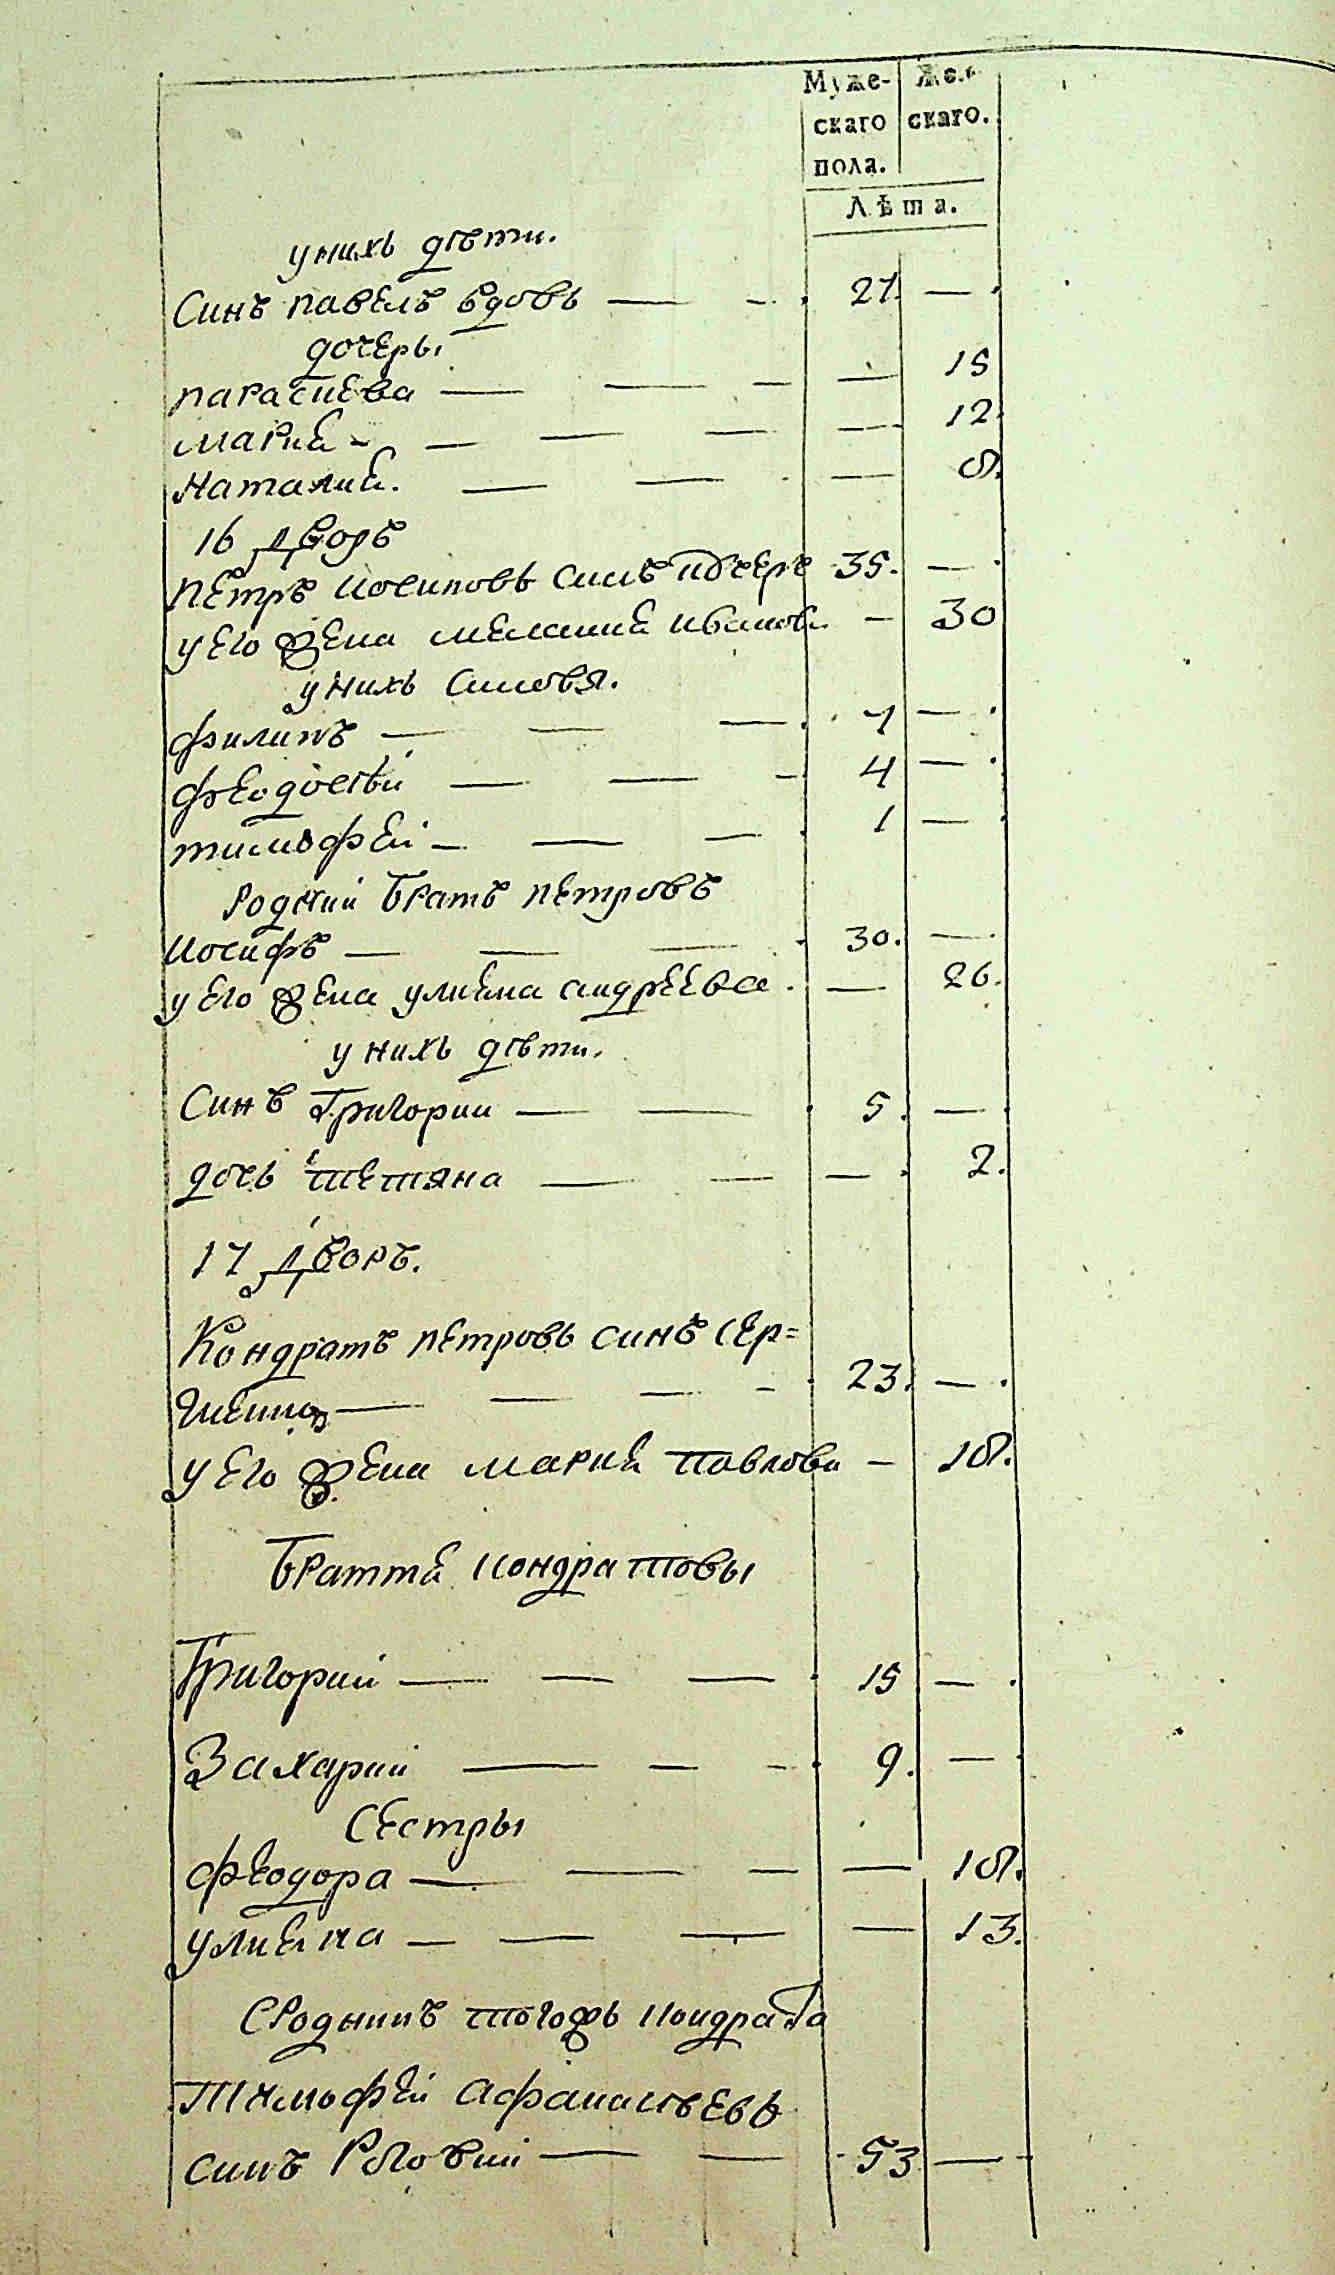 Муже- Жен
скаго скаго.
пола.
Лѣта.
у нихъ дѣти.
Синъ павелъ вдовъ — — 27. —
дочеры
параскева — — — — 15
мариѣ — — — — 12.
наталиѣ. — — — 8.
16 дворъ
петръ иосиповъ синъ 35. —
у его жена меланиѣ иванова — 30
у нихъ синовя.
филипъ — — — 7 —
феодосѣй — — — 4 —
тимофей — — — 1 —
родний братъ петровъ
иосифъ — — — 30. —
у его жена улиѣна андреева — 26.
у нихъ дѣти.
Синъ Григории — — 5. —
дочь тетяна — — — 2.
17 дворъ.
Кондратъ петровъ синъ Сер=
— — — 23. —
у его жена мариѣ павлова — 18.
братиѣ кондратовы
Григорий — — — 15 —
Захарий — — — 9. —
Сестры
феодора — — — — 18.
улиѣна — — — — 13.
Сродникъ тогожъ кондрата
Тимофей афанасьевъ
синъ — — 53 —